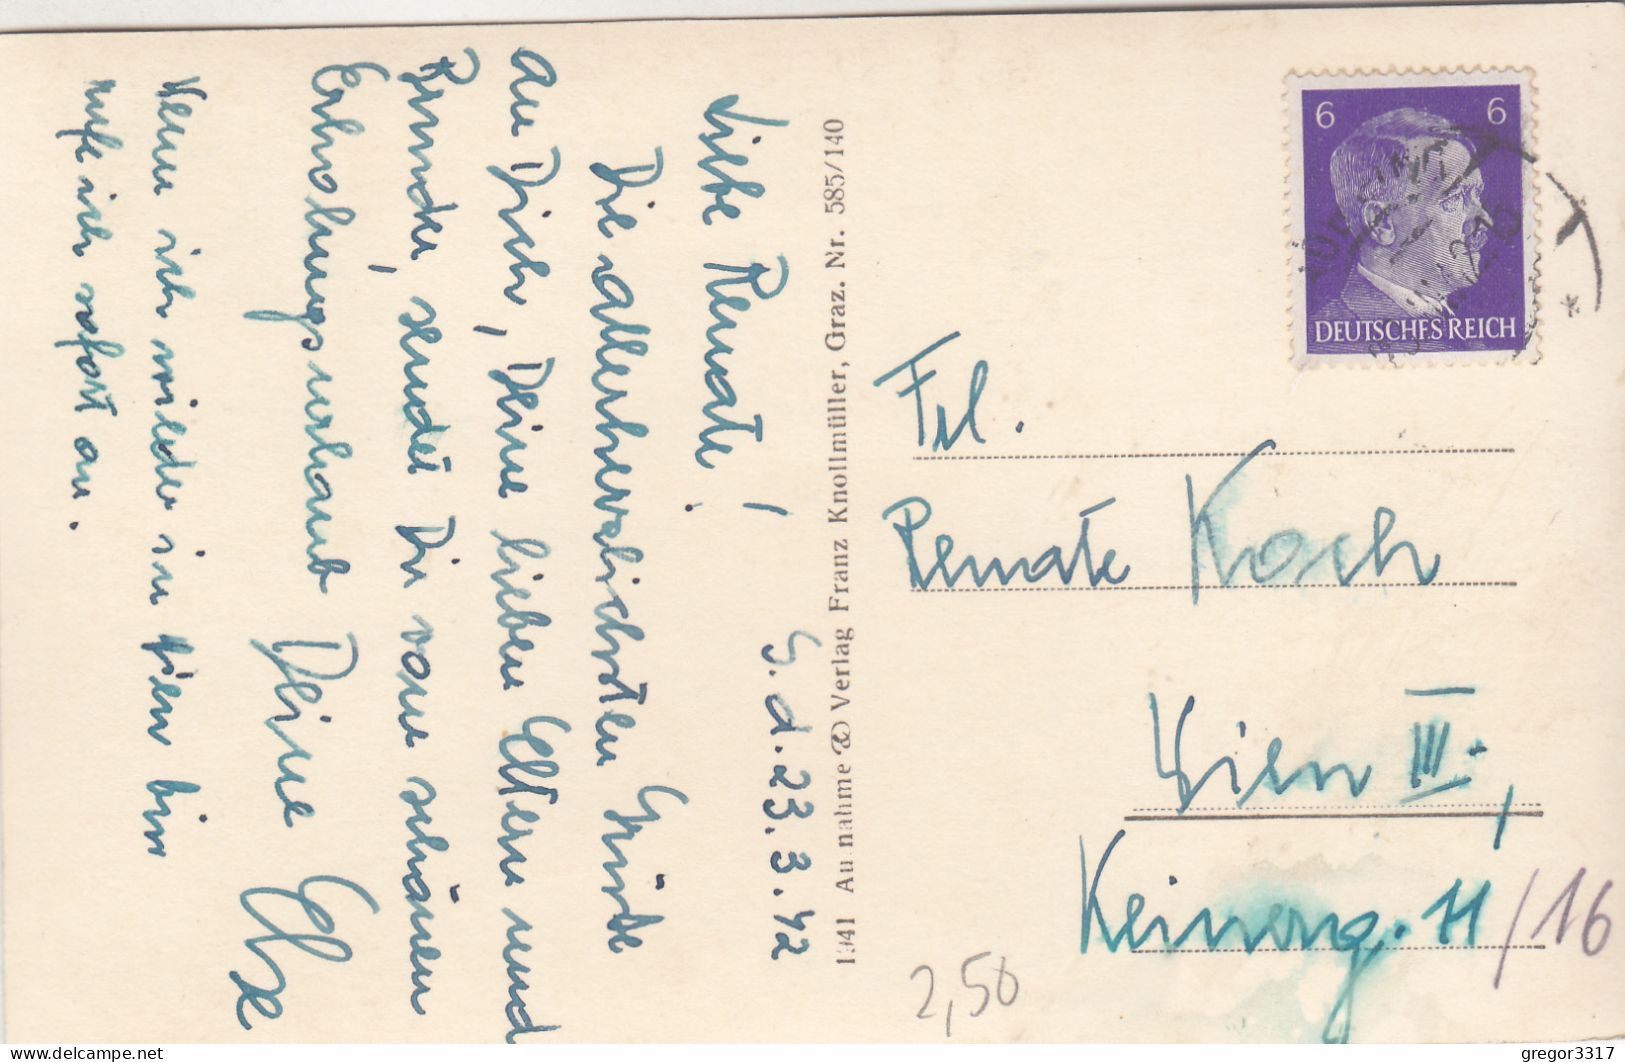 G. d. 23. 3. 42
Liebe Renate!
Die allerherzlichsten Grüße
an Dich, Deine lieben Eltern und
Bruder, sendet Dir vom schönen
Erholungsurlaub Deine Else
Wenn ich wieder in Wien bin
rufe ich sofort an.
1941 Aufnahme & Verlag Franz Knollmüller, Graz. Nr. 585/140
6 6
DEUTSCHES REICH
Frl.
Renate Koch
Wien III.,
Keinerg. 11/16
2,50
gregor3317
delcampe.net